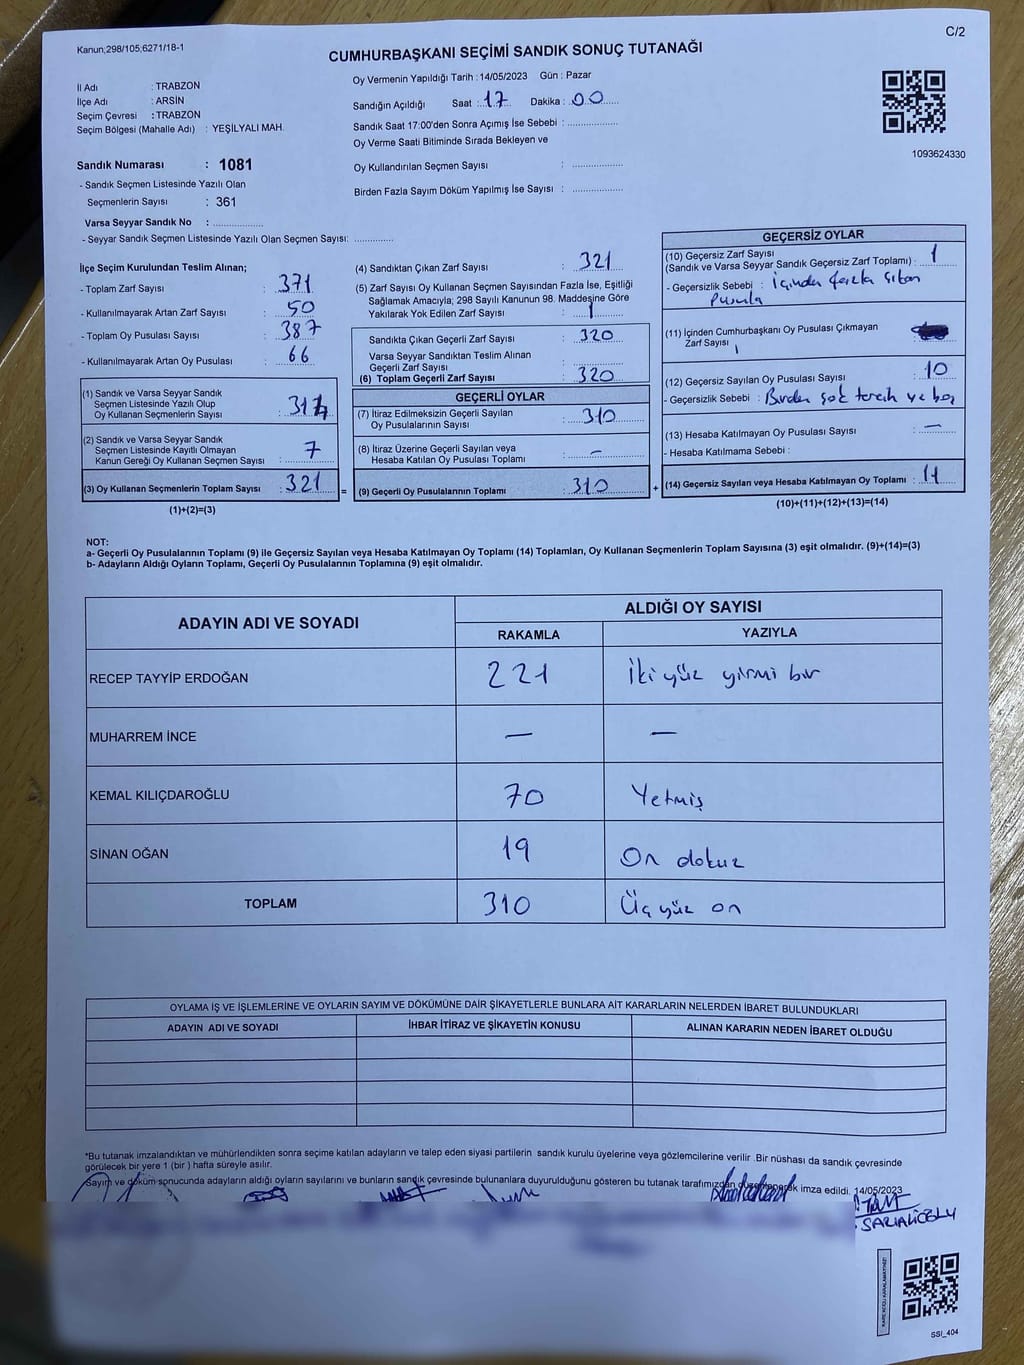 Kanun;298/105;6271/18-1
C/2
CUMHURBAŞKANI SEÇİMİ SANDIK SONUÇ TUTANAĞI
İl Adı : TRABZON
İlçe Adı : ARSİN
Seçim Çevresi : TRABZON
Seçim Bölgesi (Mahalle Adı) : YEŞİLYALI MAH.
Oy Vermenin Yapıldığı Tarih : 14/05/2023 Gün : Pazar
Sandığın Açıldığı Saat : 17 Dakika : 00
Sandık Saat 17:00'den Sonra Açımış İse Sebebi :
Oy Verme Saati Bitiminde Sırada Bekleyen ve
Oy Kullandırılan Seçmen Sayısı :
Birden Fazla Sayım Döküm Yapılmış İse Sayısı :
1093624330
Sandık Numarası : 1081
- Sandık Seçmen Listesinde Yazılı Olan
Seçmenlerin Sayısı : 361
Varsa Seyyar Sandık No :
- Seyyar Sandık Seçmen Listesinde Yazılı Olan Seçmen Sayısı:
İlçe Seçim Kurulundan Teslim Alınan;
- Toplam Zarf Sayısı : 371
- Kullanılmayarak Artan Zarf Sayısı : 50
- Toplam Oy Pusulası Sayısı : 387
- Kullanılmayarak Artan Oy Pusulası : 66
(1) Sandık ve Varsa Seyyar Sandık
Seçmen Listesinde Yazılı Olup
Oy Kullanan Seçmenlerin Sayısı : 314
(2) Sandık ve Varsa Seyyar Sandık
Seçmen Listesinde Kayıtlı Olmayan
Kanun Gereği Oy Kullanan Seçmen Sayısı : 7
(3) Oy Kullanan Seçmenlerin Toplam Sayısı : 321
(1)+(2)=(3)
(4) Sandıktan Çıkan Zarf Sayısı : 321
(5) Zarf Sayısı Oy Kullanan Seçmen Sayısından Fazla İse, Eşitliği
Sağlamak Amacıyla; 298 Sayılı Kanunun 98. Maddesine Göre
Yakılarak Yok Edilen Zarf Sayısı : 1
Sandıkta Çıkan Geçerli Zarf Sayısı : 320
Varsa Seyyar Sandıktan Teslim Alınan
Geçerli Zarf Sayısı :
(6) Toplam Geçerli Zarf Sayısı : 320
GEÇERLİ OYLAR
(7) İtiraz Edilmeksizin Geçerli Sayılan
Oy Pusulalarının Sayısı : 310
(8) İtiraz Üzerine Geçerli Sayılan veya
Hesaba Katılan Oy Pusulası Toplamı : -
= (9) Geçerli Oy Pusulalarının Toplamı : 310
GEÇERSİZ OYLAR
(10) Geçersiz Zarf Sayısı
(Sandık ve Varsa Seyyar Sandık Geçersiz Zarf Toplamı) : 1
- Geçersizlik Sebebi : İçinden fazla çıkan
Pusula
(11) İçinden Cumhurbaşkanı Oy Pusulası Çıkmayan
Zarf Sayısı
(12) Geçersiz Sayılan Oy Pusulası Sayısı : 10
- Geçersizlik Sebebi : Birden çok tercih ve boş
(13) Hesaba Katılmayan Oy Pusulası Sayısı : -
- Hesaba Katılmama Sebebi :
+ (14) Geçersiz Sayılan veya Hesaba Katılmayan Oy Toplamı : 11
(10)+(11)+(12)+(13)=(14)
NOT:
a- Geçerli Oy Pusulalarının Toplamı (9) ile Geçersiz Sayılan veya Hesaba Katılmayan Oy Toplamı (14) Toplamları, Oy Kullanan Seçmenlerin Toplam Sayısına (3) eşit olmalıdır. (9)+(14)=(3)
b- Adayların Aldığı Oyların Toplamı, Geçerli Oy Pusulalarının Toplamına (9) eşit olmalıdır.
ADAYIN ADI VE SOYADI
ALDIĞI OY SAYISI
RAKAMLA YAZIYLA
RECEP TAYYİP ERDOĞAN 221 İki yüz yirmi bir
MUHARREM İNCE - -
KEMAL KILIÇDAROĞLU 70 Yetmiş
SİNAN OĞAN 19 On dokuz
TOPLAM 310 Üç yüz on
OYLAMA İŞ VE İŞLEMLERİNE VE OYLARIN SAYIM VE DÖKÜMÜNE DAİR ŞİKAYETLERLE BUNLARA AİT KARARLARIN NELERDEN İBARET BULUNDUKLARI
ADAYIN ADI VE SOYADI İHBAR İTİRAZ VE ŞİKAYETİN KONUSU ALINAN KARARIN NEDEN İBARET OLDUĞU
*Bu tutanak imzalandıktan ve mühürlendikten sonra seçime katılan adayların ve talep eden siyasi partilerin sandık kurulu üyelerine veya gözlemcilerine verilir .Bir nüshası da sandık çevresinde
görülecek bir yere 1 (bir ) hafta süreyle asılır.
Sayım ve döküm sonucunda adayların aldığı oyların sayılarını ve bunların sandık çevresinde bulunanlara duyurulduğunu gösteren bu tutanak tarafımızdan imza edildi. 14/05/2023
SARIALİOĞLU
KARE KODU KARALAMAYINIZ!
SSI_404